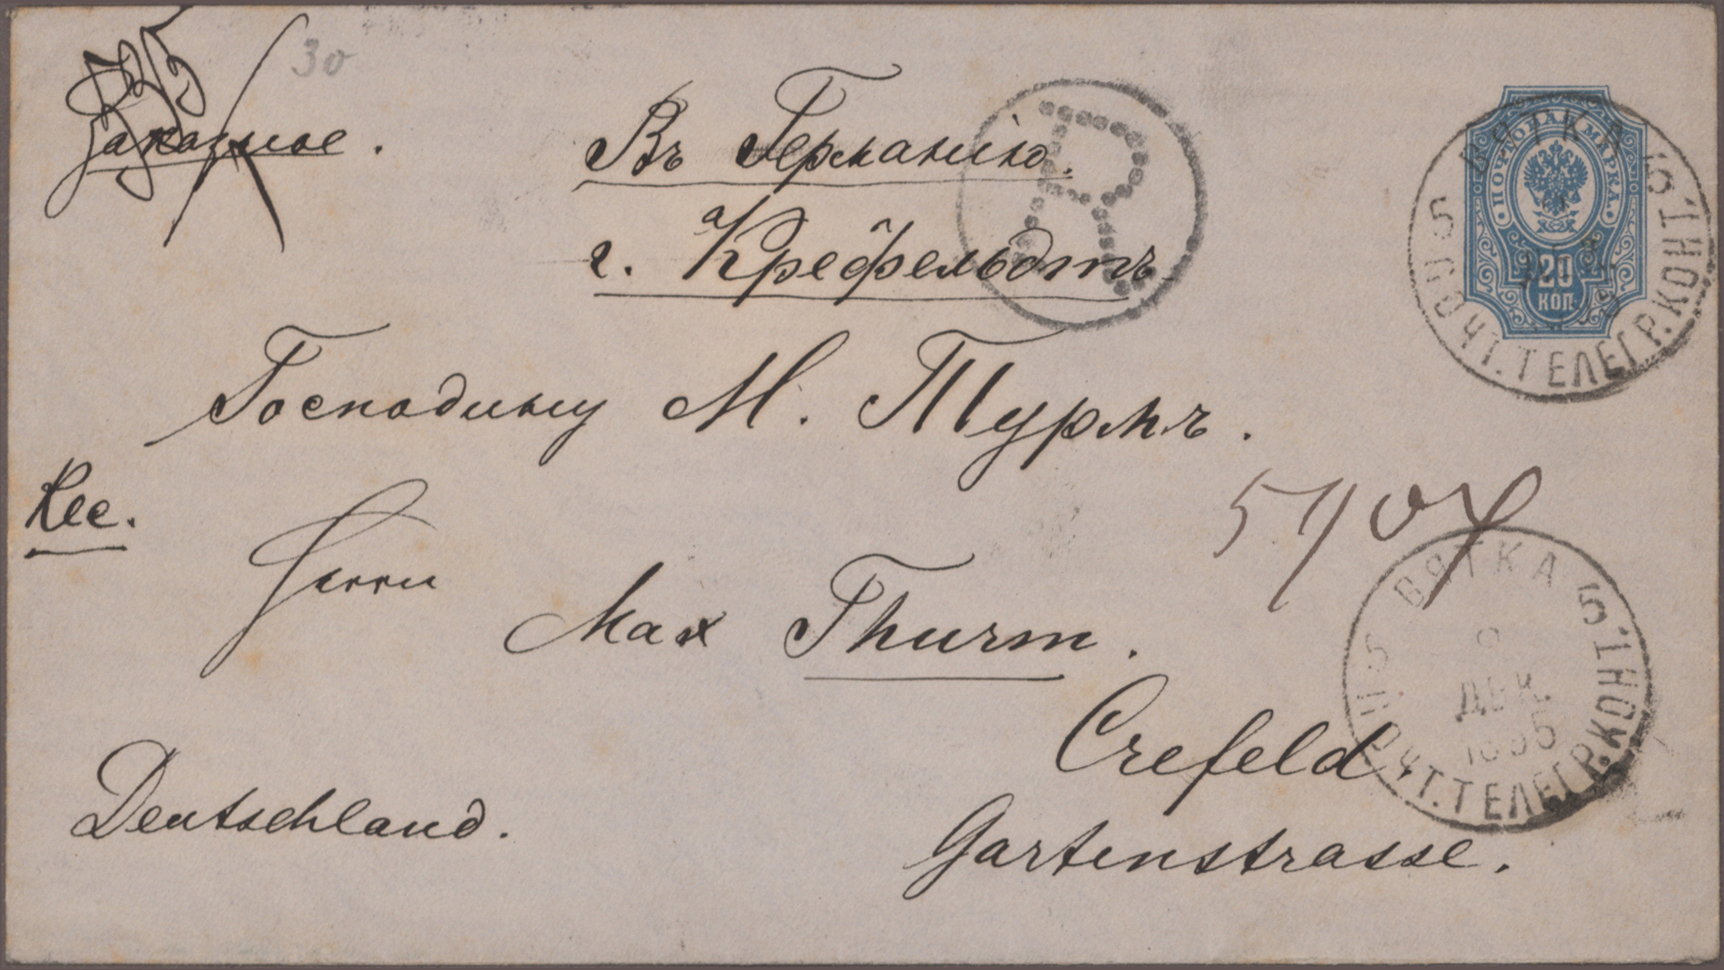 325
30
Заказное.
Въ Германію.
г. Крефельдтъ
R
ПОЧТОВАЯ МАРКА
20
КОП.
ВЯТКА
5 ПОЧТ. ТЕЛЕГР. КОНТ. 5
Господину М. Турмъ.
Rec.
Herrn
Max Thurm.
Crefeld.
Gartenstrasse.
Deutschland.
ВЯТКА
ДЕК.
1895
5 ПОЧТ. ТЕЛЕГР. КОНТ. 5